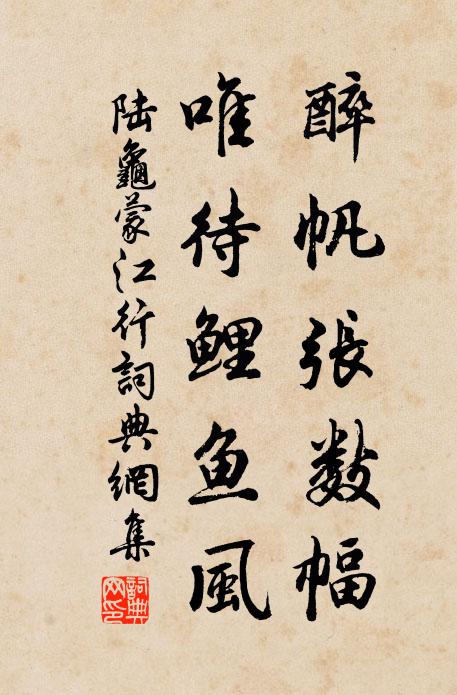 醉帆張数幅
唯待鲤鱼風
陸龜蒙江行詞典網集
詞典